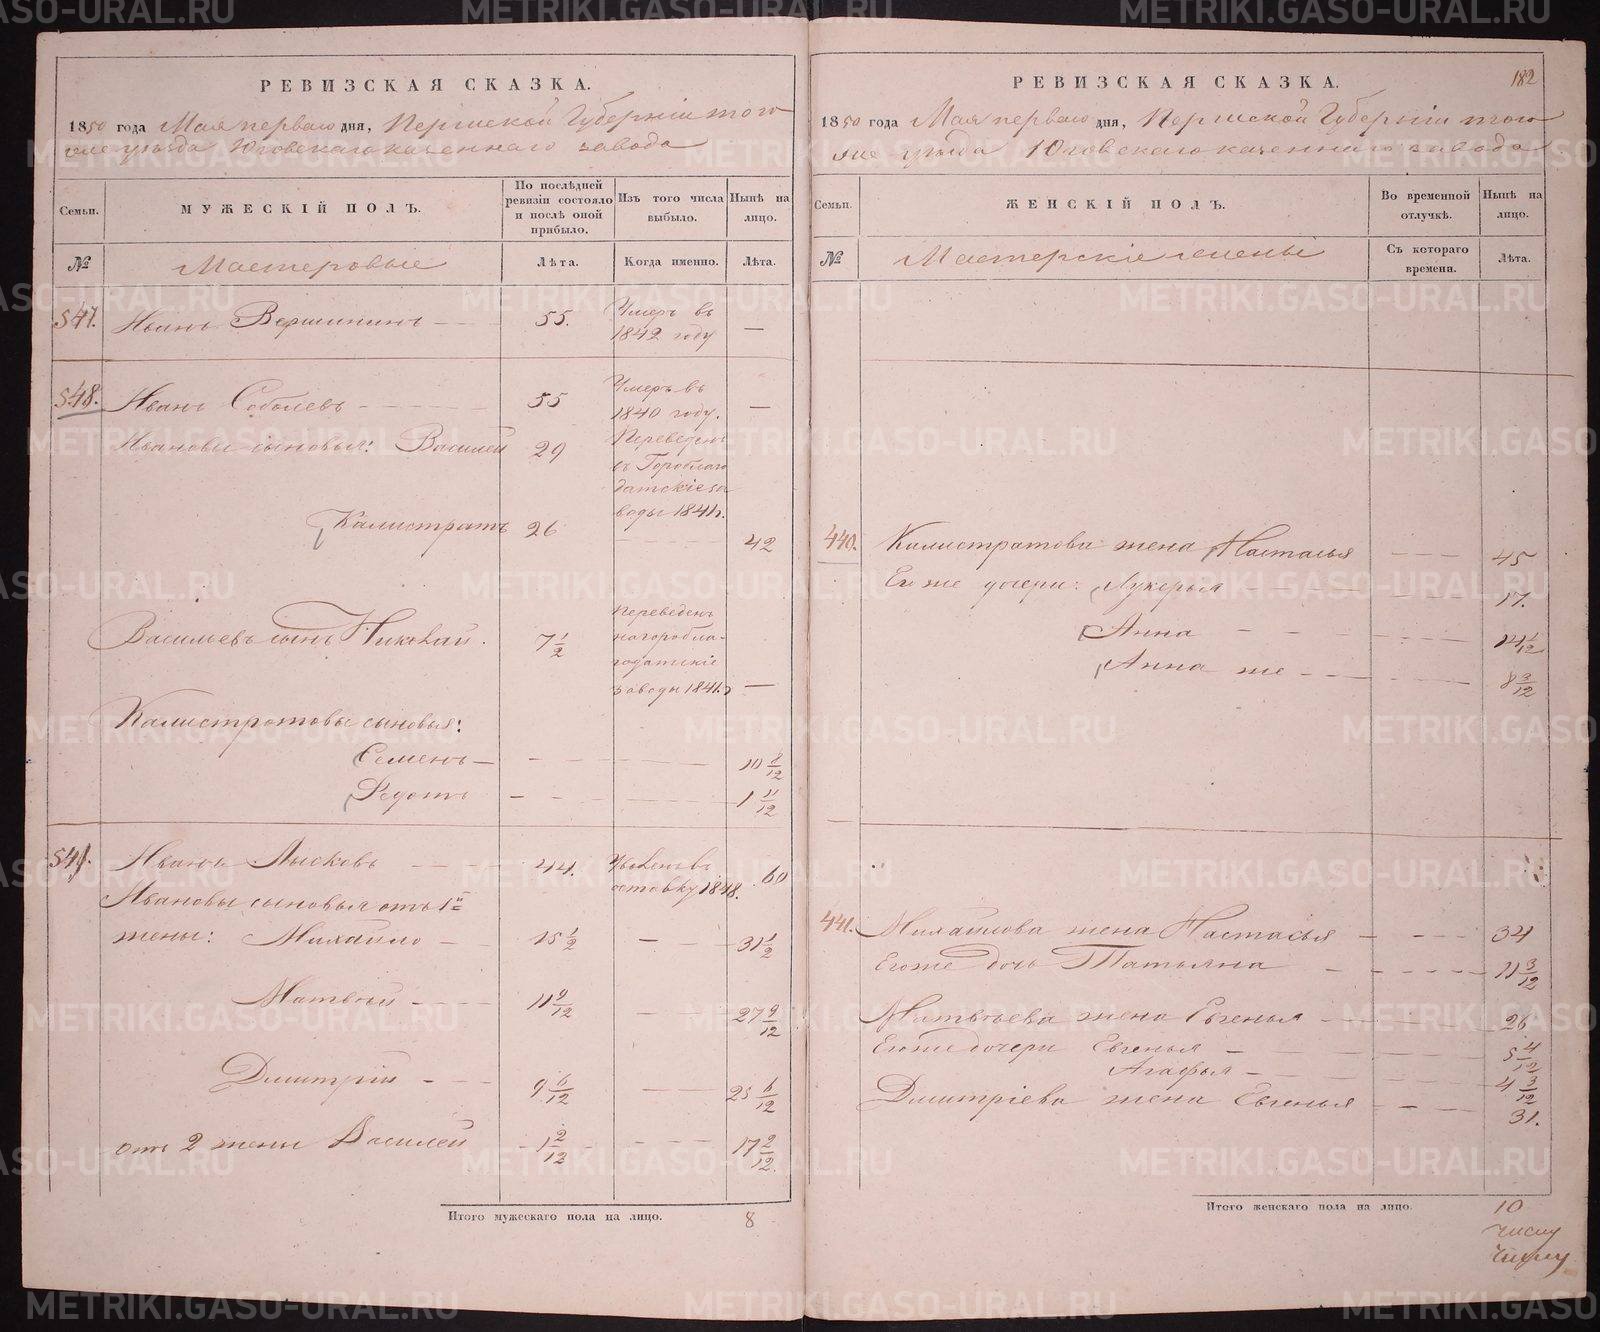 РЕВИЗСКАЯ СКАЗКА.
1850 года Мая первого дня, Пермской Губерніи того
же уѣзда Юговскаго казеннаго завода
Семьи.
МУЖЕСКІЙ ПОЛЪ.
По послѣдней ревизіи состояло и послѣ оной прибыло.
Изъ того числа выбыло.
Нынѣ на лицо.
№
Мастеровые
Лѣта.
Когда именно.
Лѣта.
547. Иванъ Вершининъ 55. Умеръ въ 1842 году —
548. Иванъ Соболевъ 55 Умеръ въ 1840 году. —
Ивановы сыновья: Василей 29 Переведенъ въ Гороблагодатскіе заводы 1841 г.
Калистратъ 26 42
Васильевъ сынъ Николай. 7 1/2 Переведенъ на гороблагодатскіе заводы 1841 г. —
Калистратовы сыновья:
Семенъ — 10 8/12
Федотъ 1 11/12
549. Иванъ Лысковъ 44. отставку 1848. 60
Ивановы сыновья отъ 1й
жены: Михайло 15 1/2 — 31 1/2
Матвѣй 11 9/12 27 9/12
Дмитрій 9 6/12 — 25 6/12
отъ 2 жены Василей 1 2/12 17 2/12.
Итого мужескаго пола на лицо. 8
182
РЕВИЗСКАЯ СКАЗКА.
1850 года Мая первого дня, Пермской Губерніи того
же уѣзда Юговскаго казеннаго завода
Семьи.
ЖЕНСКІЙ ПОЛЪ.
Во временной отлучкѣ.
Нынѣ на лицо.
№
Мастерскіе жены
Съ котораго времени.
Лѣта.
440. Калистратова жена Настасья 45
Его же дочери: Лукерья 17.
Анна 14 1/12
Анна же 8 3/12
441. Михайлова жена Настасья 34
Его же дочь Татьяна 11 3/12
Матвѣева жена Евгенья 26
Его же дочери Евгенья 5 4/12
Агафья 4 3/12
Дмитріева жена Евгенья 31.
Итого женскаго пола на лицо. 10
METRIKI.GASO-URAL.RU